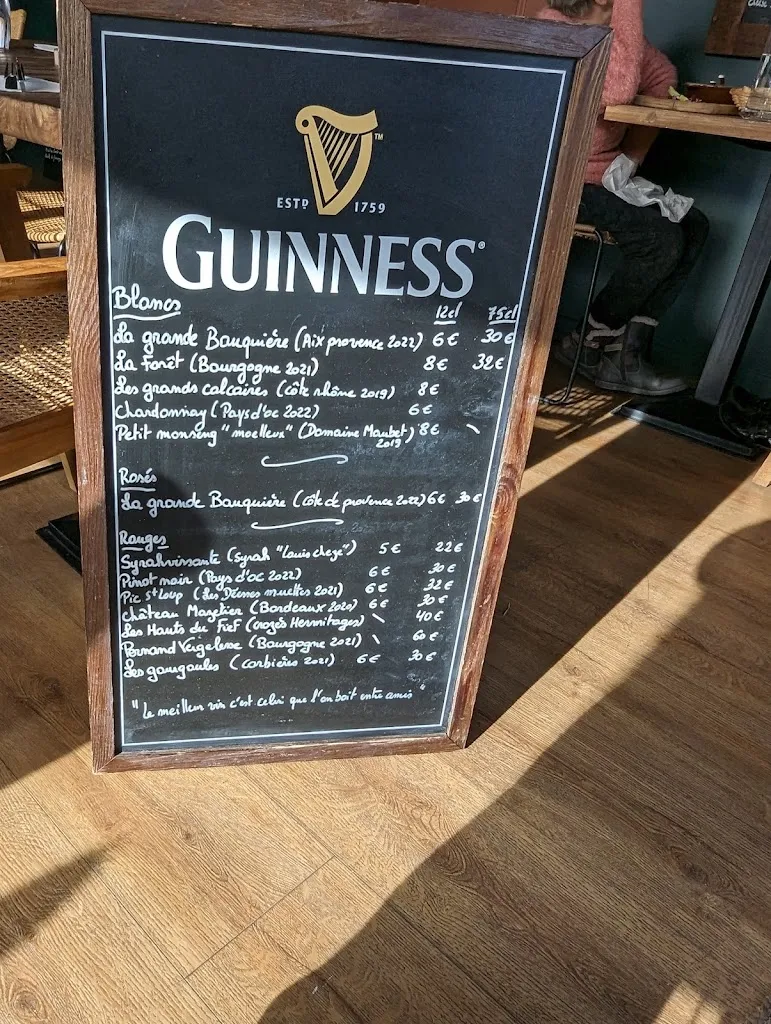 ESTD 1759
GUINNESS
Blancs 12cl 75cl
La grande Bauquière (Aix provence 2022) 6€ 30€
La Forêt (Bourgogne 2021) 8€ 32€
Les grands calcaires (côte rhône 2019) 8€
Chardonnay (Pays d'oc 2022) 6€
Petit monseng "moelleux" (Domaine Maubet) 8€ \
2019
Rosés
La grande Bauquière (côte de provence 2022) 6€ 30€
Rouges
Syrahvissante (Syrah "Louis cheze") 5€ 22€
Pinot noir (Pays d'oc 2022) 6€ 30€
Pic St Loup (Les Déesses muettes 2021) 6€ 32€
Château Magelier (Bordeaux 2020) 6€ 30€
Les Hauts du Fief (crozes Hermitages) \ 40€
Pernand Vergelesse (Bourgogne 2021) \ 60€
Les gougaules (Corbières 2021) 6€ 30€
"Le meilleur vin c'est celui que l'on boit entre amis"